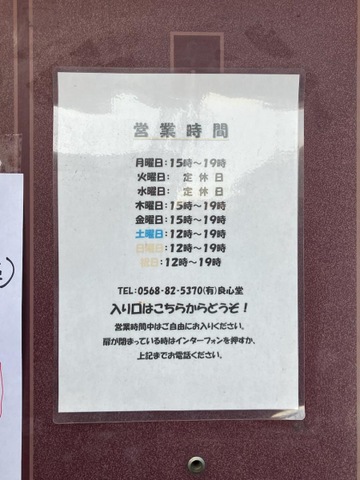 営業時間
月曜日：15時～19時
火曜日： 定 休 日
水曜日： 定 休 日
木曜日：15時～19時
金曜日：15時～19時
土曜日：12時～19時
日曜日：12時～19時
祝日：12時～19時
TEL：0568-82-5370(有)良心堂
入り口はこちらからどうぞ！
営業時間中はご自由にお入りください。
扉が閉まっている時はインターフォンを押すか、
上記までお電話ください。